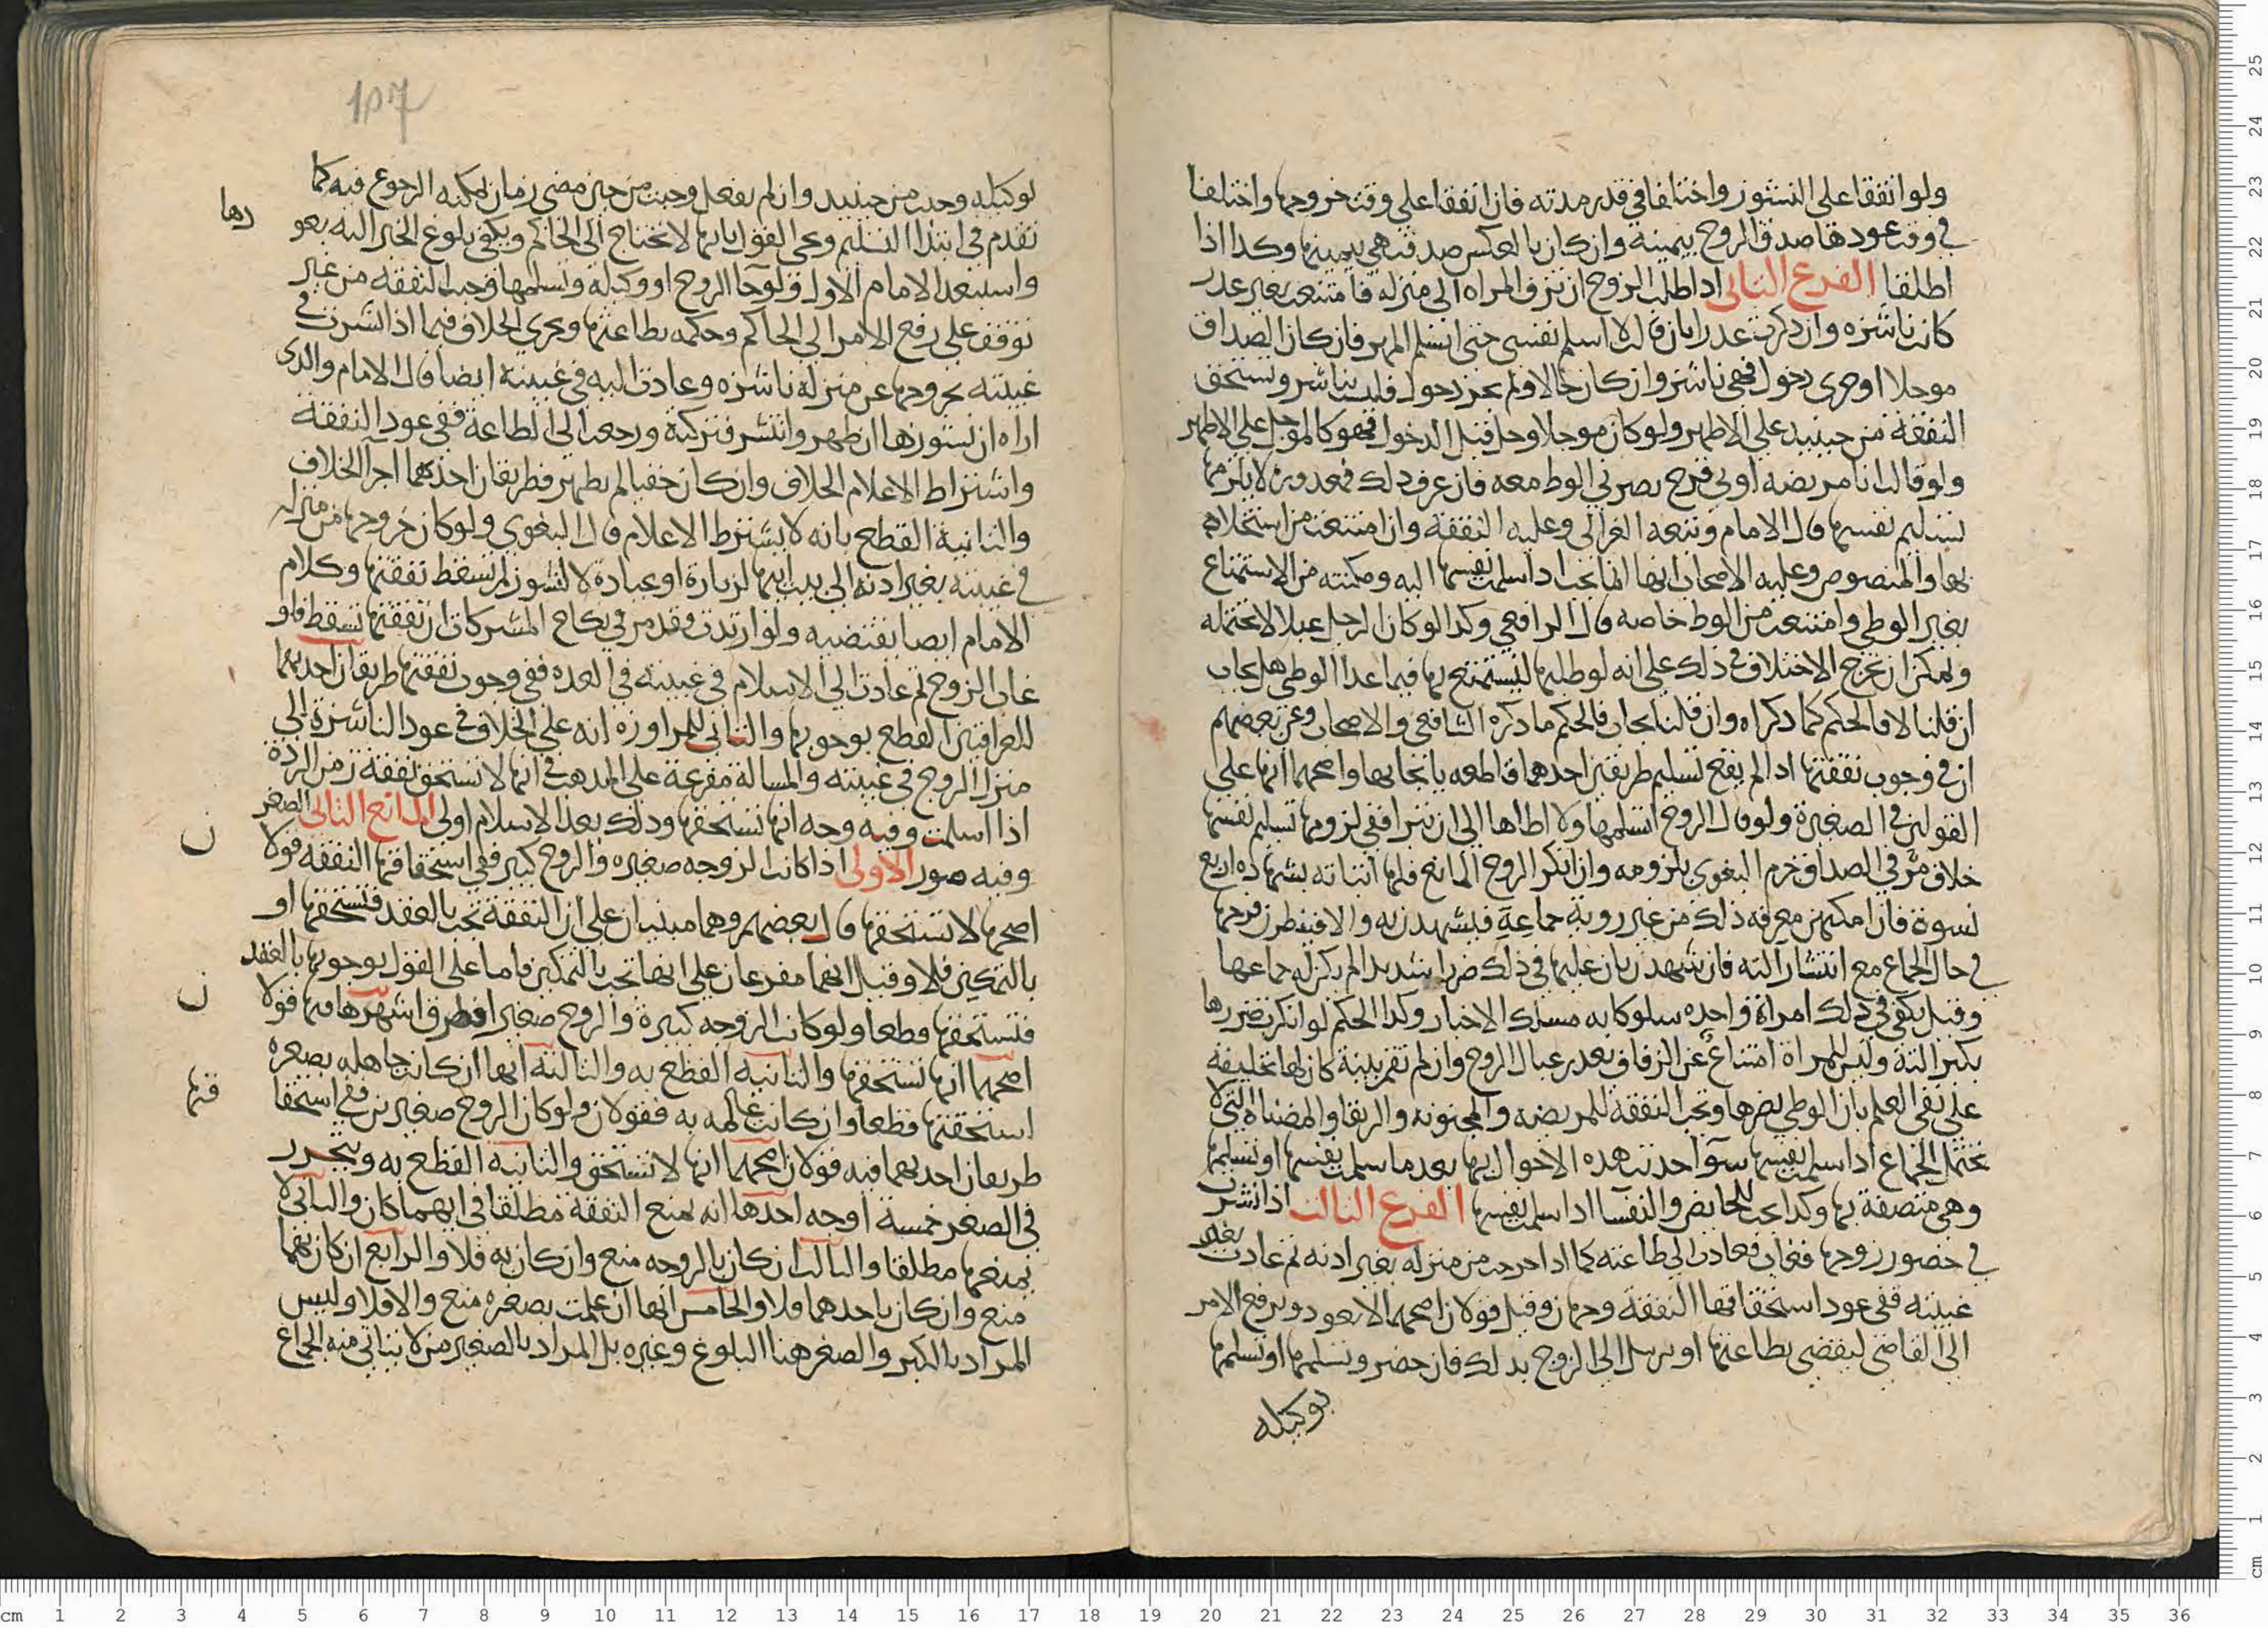 ولو اتفقا على النشوز واختلفا في قدر مدته فان اتفقا على وقت خروجها واختلفا
في وقت عودها صدق الزوج بيمينه وان كان بالعكس صدقت هي بيمينها وكذا اذا
اطلقا الفرع الثاني اذا طلب الزوج ان تزف المراه الى منزله فامتنعت بغير عذر
كانت ناشزه وان ذكرت عذرا بان قالت لا اسلم نفسي حتى اتسلم المهر فان كان الصداق
موجلا او جرى دخول فهي ناشز وان كان حالا ولم يجر دخول فليست بناشز وتستحق
النفقة من حينيذ على الاظهر ولو كان موجلا وحل قبل الدخول فهو كالموجل على الاظهر
ولو قالت انا مريضه او بي قرح يضر بي الوط معه فان عرف ذلك فمعذورة لا يلزمها
تسليم نفسها قال الامام وتبعه الغزالي وعليه النفقة وان امتنعت من استخلاه
بها والمنصوص وعليه الاصحاب انها انما تجب اذا سلمت نفسها اليه ومكنته من الاستمتاع
بغير الوطي وامتنعت من الوط خاصه قال الرافعي وكذا لو كان الرجل عبلا لا تحتمله
ويمكن ان يخرج الاختلاف في ذلك على انه لو طلبها ليستمتع بها فيما عدا الوطي هل يجاب
ان قلنا لا فالحكم كما ذكراه وان قلنا يجاب فالحكم ما ذكره الشافعي والاصحاب وعن بعضهم
ان في وجوب نفقتها اذا لم يقع تسليم طريقين احدهما قاطعه بايجابها واصحهما انها على
القولين في الصغيرة ولو قال الزوج اتسلمها ولا اطاها الى ان تبرا ففي لزومها تسليم نفسها
خلاف مر في الصداق جزم البغوي بلزومه وان انكر الزوج المانع فلها اثباته بشهاده اربع
نسوة فان امكنهن معرفه ذلك من غير روية جماعة فيشهدن به والا فينظرن فرجها
في حال الجماع مع انتشار آلته فان شهدن بان عليها في ذلك ضررا شديدا لم يكن له جماعها
وقيل يكفي في ذلك امراة واحده سلوكا به مسلك الاخبار وكذا الحكم لو انكر تضررها
بكبر آلته وليس للمراة امتناع عن الزفاف بعذر عبال الزوج وان لم تقم بينة كان لها تحليفه
على نفي العلم بان الوطي يضرها وتجب النفقة للمريضه والمجنونه والرتقا والمضناة التي لا
تحتمل الجماع اذا سلمت نفسها سوآ حدثت هذه الاحوال بها بعد ما سلمت نفسها او تسليمها
وهي متصفة بها وكذا تجب للحايض والنفسا اذا سلمت نفسها الفرع الثالث اذا نشزت
في حضور زوجها فغاب فعادت الى طاعته كما اذا خرجت من منزله بغير اذنه ثم عادت بغير
غيبته ففي عود استحقاقها النفقة وجهان وقيل قولان اصحهما لا يعود ويرفع الامر
الى القاضي ليقضي بطاعتها او يرسل الى الزوج بذلك فان حضر وتسلمها او تسلمها
بوكيله
107
لوكيله وجبت من حينيذ وان لم يفعل وجبت من حين مضى زمان يمكنه الرجوع فيه كما
تقدم في ابتدا التسليم وعلى القول بانها لا تحتاج الى الحاكم ويكفي بلوغ الخبر اليه بعو
دها
واستبعد الامام الاول ولو جا الزوج او وكيله وتسلمها وجبت النفقة من غير
توقف على رفع الامر الى الحاكم وحكمه بطاعتها ويجري الخلاف فيما اذا نشزت في
غيبته بخروجها عن منزله ناشزه وعادت اليه في غيبته ايضا قال الامام والذي
اراه ان نشوزها ان ظهر وانتشر فتركته ورجعت الى الطاعة ففي عود النفقة
واشتراط الاعلام الخلاف وان كان خفيا لم يظهر فطريقان احدهما اجرآ الخلاف
والثانية القطع بانه لا يشترط الاعلام قال البغوي ولو كان خروجها من منزله
في غيبته بغير اذنه الى بيت ابيها لزيارة او عيادة لا لنشوز لم تسقط نفقتها وكلام
الامام ايضا يقتضيه ولو ارتدت وقد مر في نكاح المشركات ان نفقتها تسقط فلو
غاب الزوج ثم عادت الى الاسلام في غيبته في العده ففي وجوب نفقتها طريقان احدهما
للعراقيين القطع بوجوبها والثاني للمراوزه انه على الخلاف في عود الناشزة الى
منزل الزوج في غيبته والمسالة مفرعة على المذهب في انها لا تستحق نفقة زمن الردة
اذا اسلمت وفيه وجه انها تستحقها وذلك بعد الاسلام اولى المانع الثاني الصغر
وفيه صور الاولى اذا كانت الزوجه صغيره والزوج كبير ففي استحقاقها النفقه قولا
ن
اصحهما لا تستحقها قال بعضهم وهما مبنيان على ان النفقة تجب بالعقد فتستحقها او
بالتمكين فلا وقيل انهما مفرعان على انها تجب بالتمكين فاما على القول بوجوبها بالعقد
فتستحقها قطعا ولو كانت الزوجه كبيرة والزوج صغيرا فطرق اشهرها فيه قولا
ن
اصحهما انها تستحقها والثانية القطع به والثالثة انها ان كانت جاهله بصغره
استحقتها قطعا وان كانت عالمه به فقولان ولو كان الزوج صغيرين ففي استحقا
قها
طريقان احدهما فيه قولان اصحهما انها لا تستحق والثانية القطع به ويتحرر
في الصغر خمسة اوجه احدها انه يمنع النفقة مطلقا في ايهما كان والثاني لا
يمنعها مطلقا والثالث ان كان بالزوجه منع وان كان به فلا والرابع ان كان بهما
منع وان كان باحدهما فلا والخامس انها ان علمت بصغره منع والا فلا وليس
المراد بالكبر والصغر هنا البلوغ وغيره بل المراد بالصغير من لا يتاتى منه الجماع